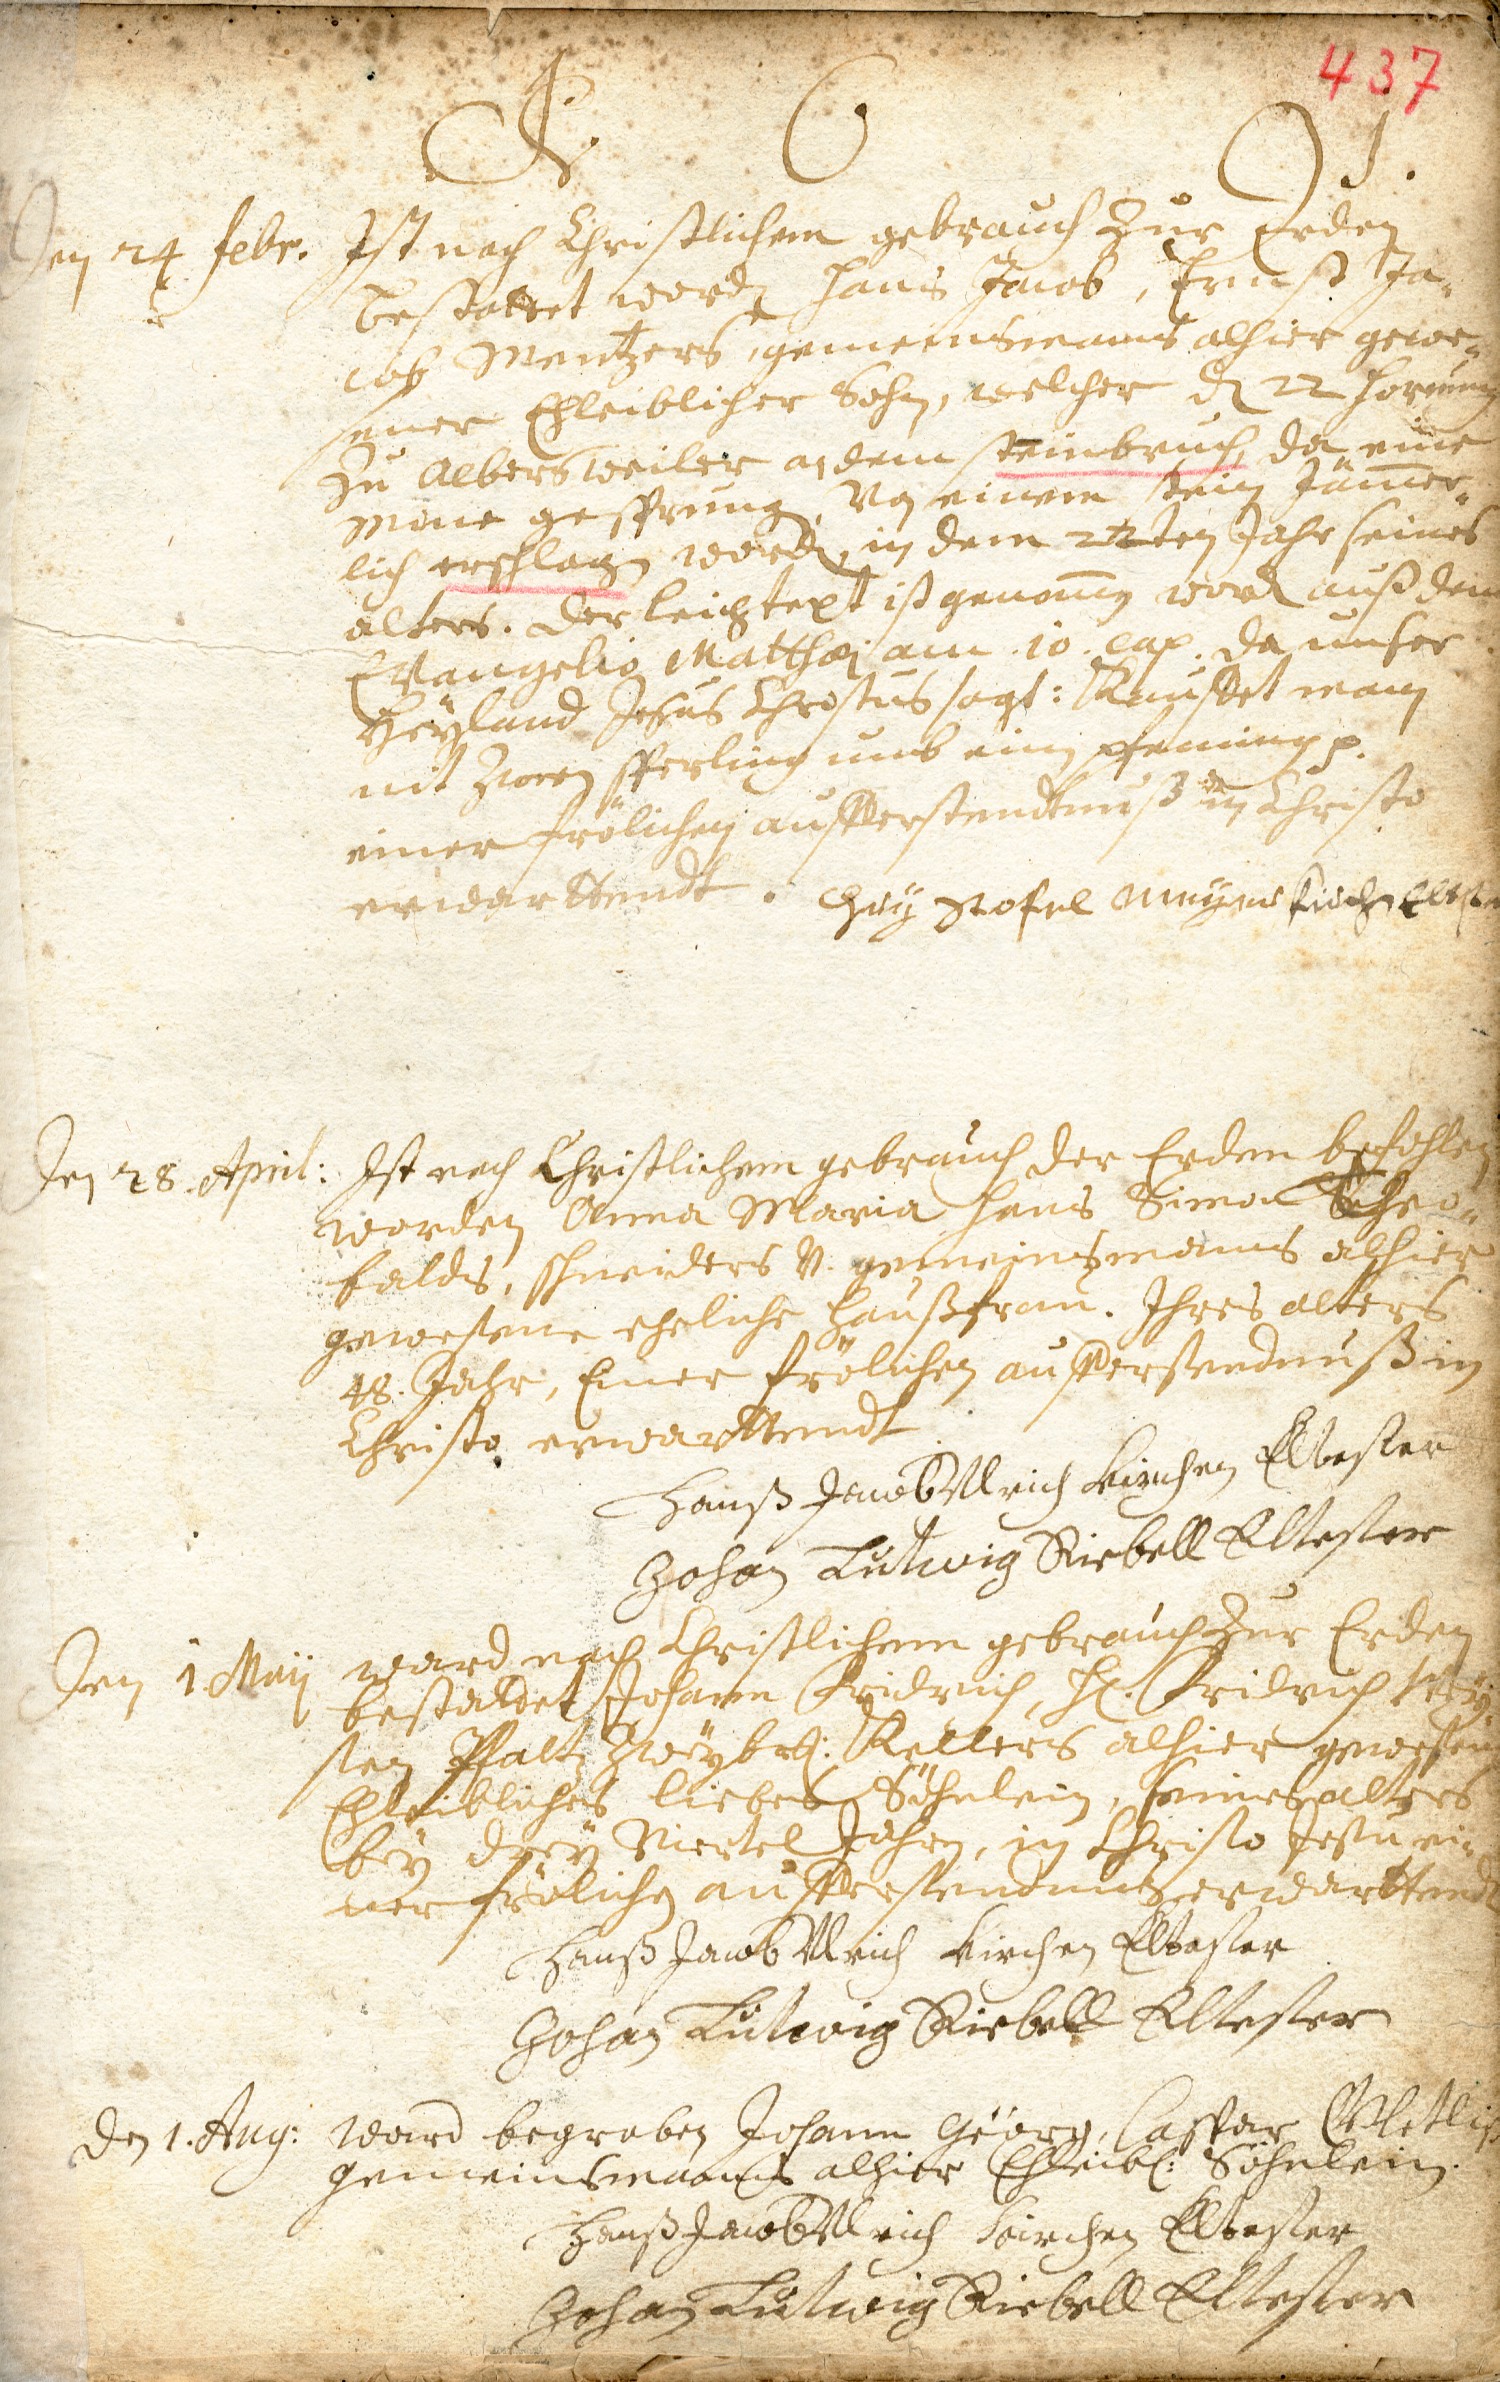 437
A. O. I.
Den 24 febr. Ist nach Christlichem gebrauch Zur Erden
bestattet worden Hans Jacob, Ernst Ja-
cob Mentzers, gemeinsmanns alhier gewe-
sener Ehleiblicher Sohn, welcher d. 22 Hornung
Zu Albersweiler an dem steinbruch, da eine
Mine gesprung, Von einem stein Jämer-
lich erschlagen worden, in dem 22ten Jahr seines
alters. Der leichtext ist genomen word auß dem
Evangelio Matthæj am 10. cap. da unser
Heyland Jesus Christus sagt: Kauffet man
nit Zween sperling umb ein pfenning p.
einer frölichen aufferstendtnuß in Christo
erwarttendt. Stofel Meyer Kirchen Eltster
Den 28. April: Ist nach Christlichem gebrauch der Erden befohlen
worden Anna Maria Hans Simon Theo-
balds, schneiders V. gemeinsmanns alhier
gewesene eheliche Haußfrau. Ihres alters
48. Jahr, Einer frölichen aufferstendnuß in
Christo erwarttendt
Hanß Jacob Ulrich Kirchen Eltester
Johan Lutwig Riebell Eltester
Den 1. Maij ward nach Christlichem gebrauch Zur Erden
bestattet Johann Fridrich, H. Fridrich
Pfaltz Zweybr: Kellers alhier gewesen
Ehleibliches liebes Söhnlein, seines alters
bey drey Viertel Jahren, in Christo Jesu ei-
ner frölichen aufferstendnus erwarttendt
Hanß Jacob Ulrich Kirchen Eltester
Johan Lutwig Riebell Eltester
Den 1. Aug: Ward begraben Johann Georg, Caspar
gemeinsmanns alhier Ehleibl: Söhnlein.
Hanß Jacob Ulrich Kirchen Eltester
Johan Lutwig Riebell Eltester